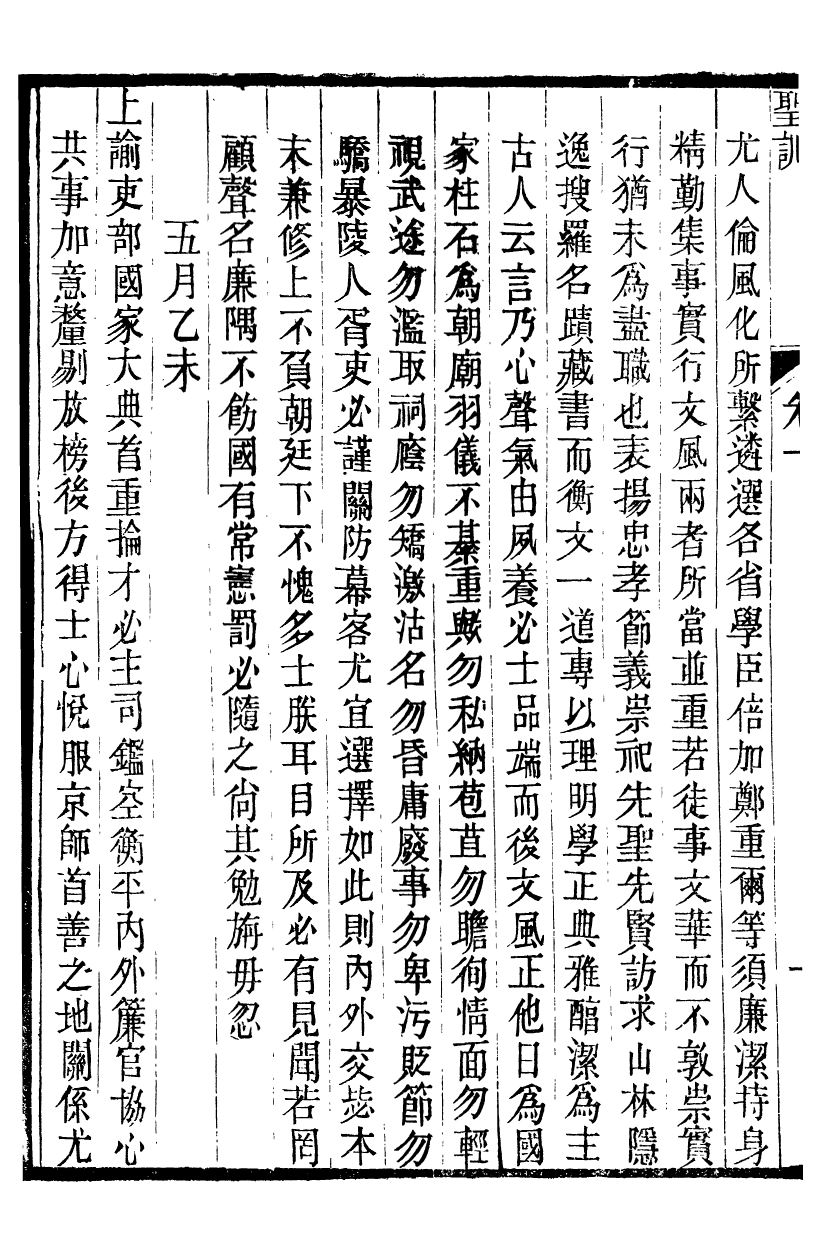 聖訓
卷一
一
尤人倫風化所繫遴選各省學臣倍加鄭重爾等須廉潔持身
精勤集事實行文風兩者所當並重若徒事文華而不敦崇實
行猶未爲盡職也表揚忠孝節義崇祀先聖先賢訪求山林隱
逸搜羅名蹟藏書而衡文一道專以理明學正典雅醕潔爲主
古人云言乃心聲氣由夙養必士品端而後文風正他日爲國
家柱石爲朝廟羽儀不綦重歟勿私納苞苴勿瞻徇情面勿輕
視武途勿濫取祠廕勿矯激沽名勿昏庸廢事勿卑污貶節勿
驕暴陵人胥吏必謹關防幕客尤宜選擇如此則內外交毖本
末兼修上不負朝廷下不愧多士朕耳目所及必有見聞若罔
顧聲名廉隅不飭國有常憲罰必隨之尙其勉旃毋忽
五月乙未
上諭吏部國家大典首重掄才必主司鑑空衡平內外簾官協心
共事加意釐剔放榜後方得士心悅服京師首善之地關係尤